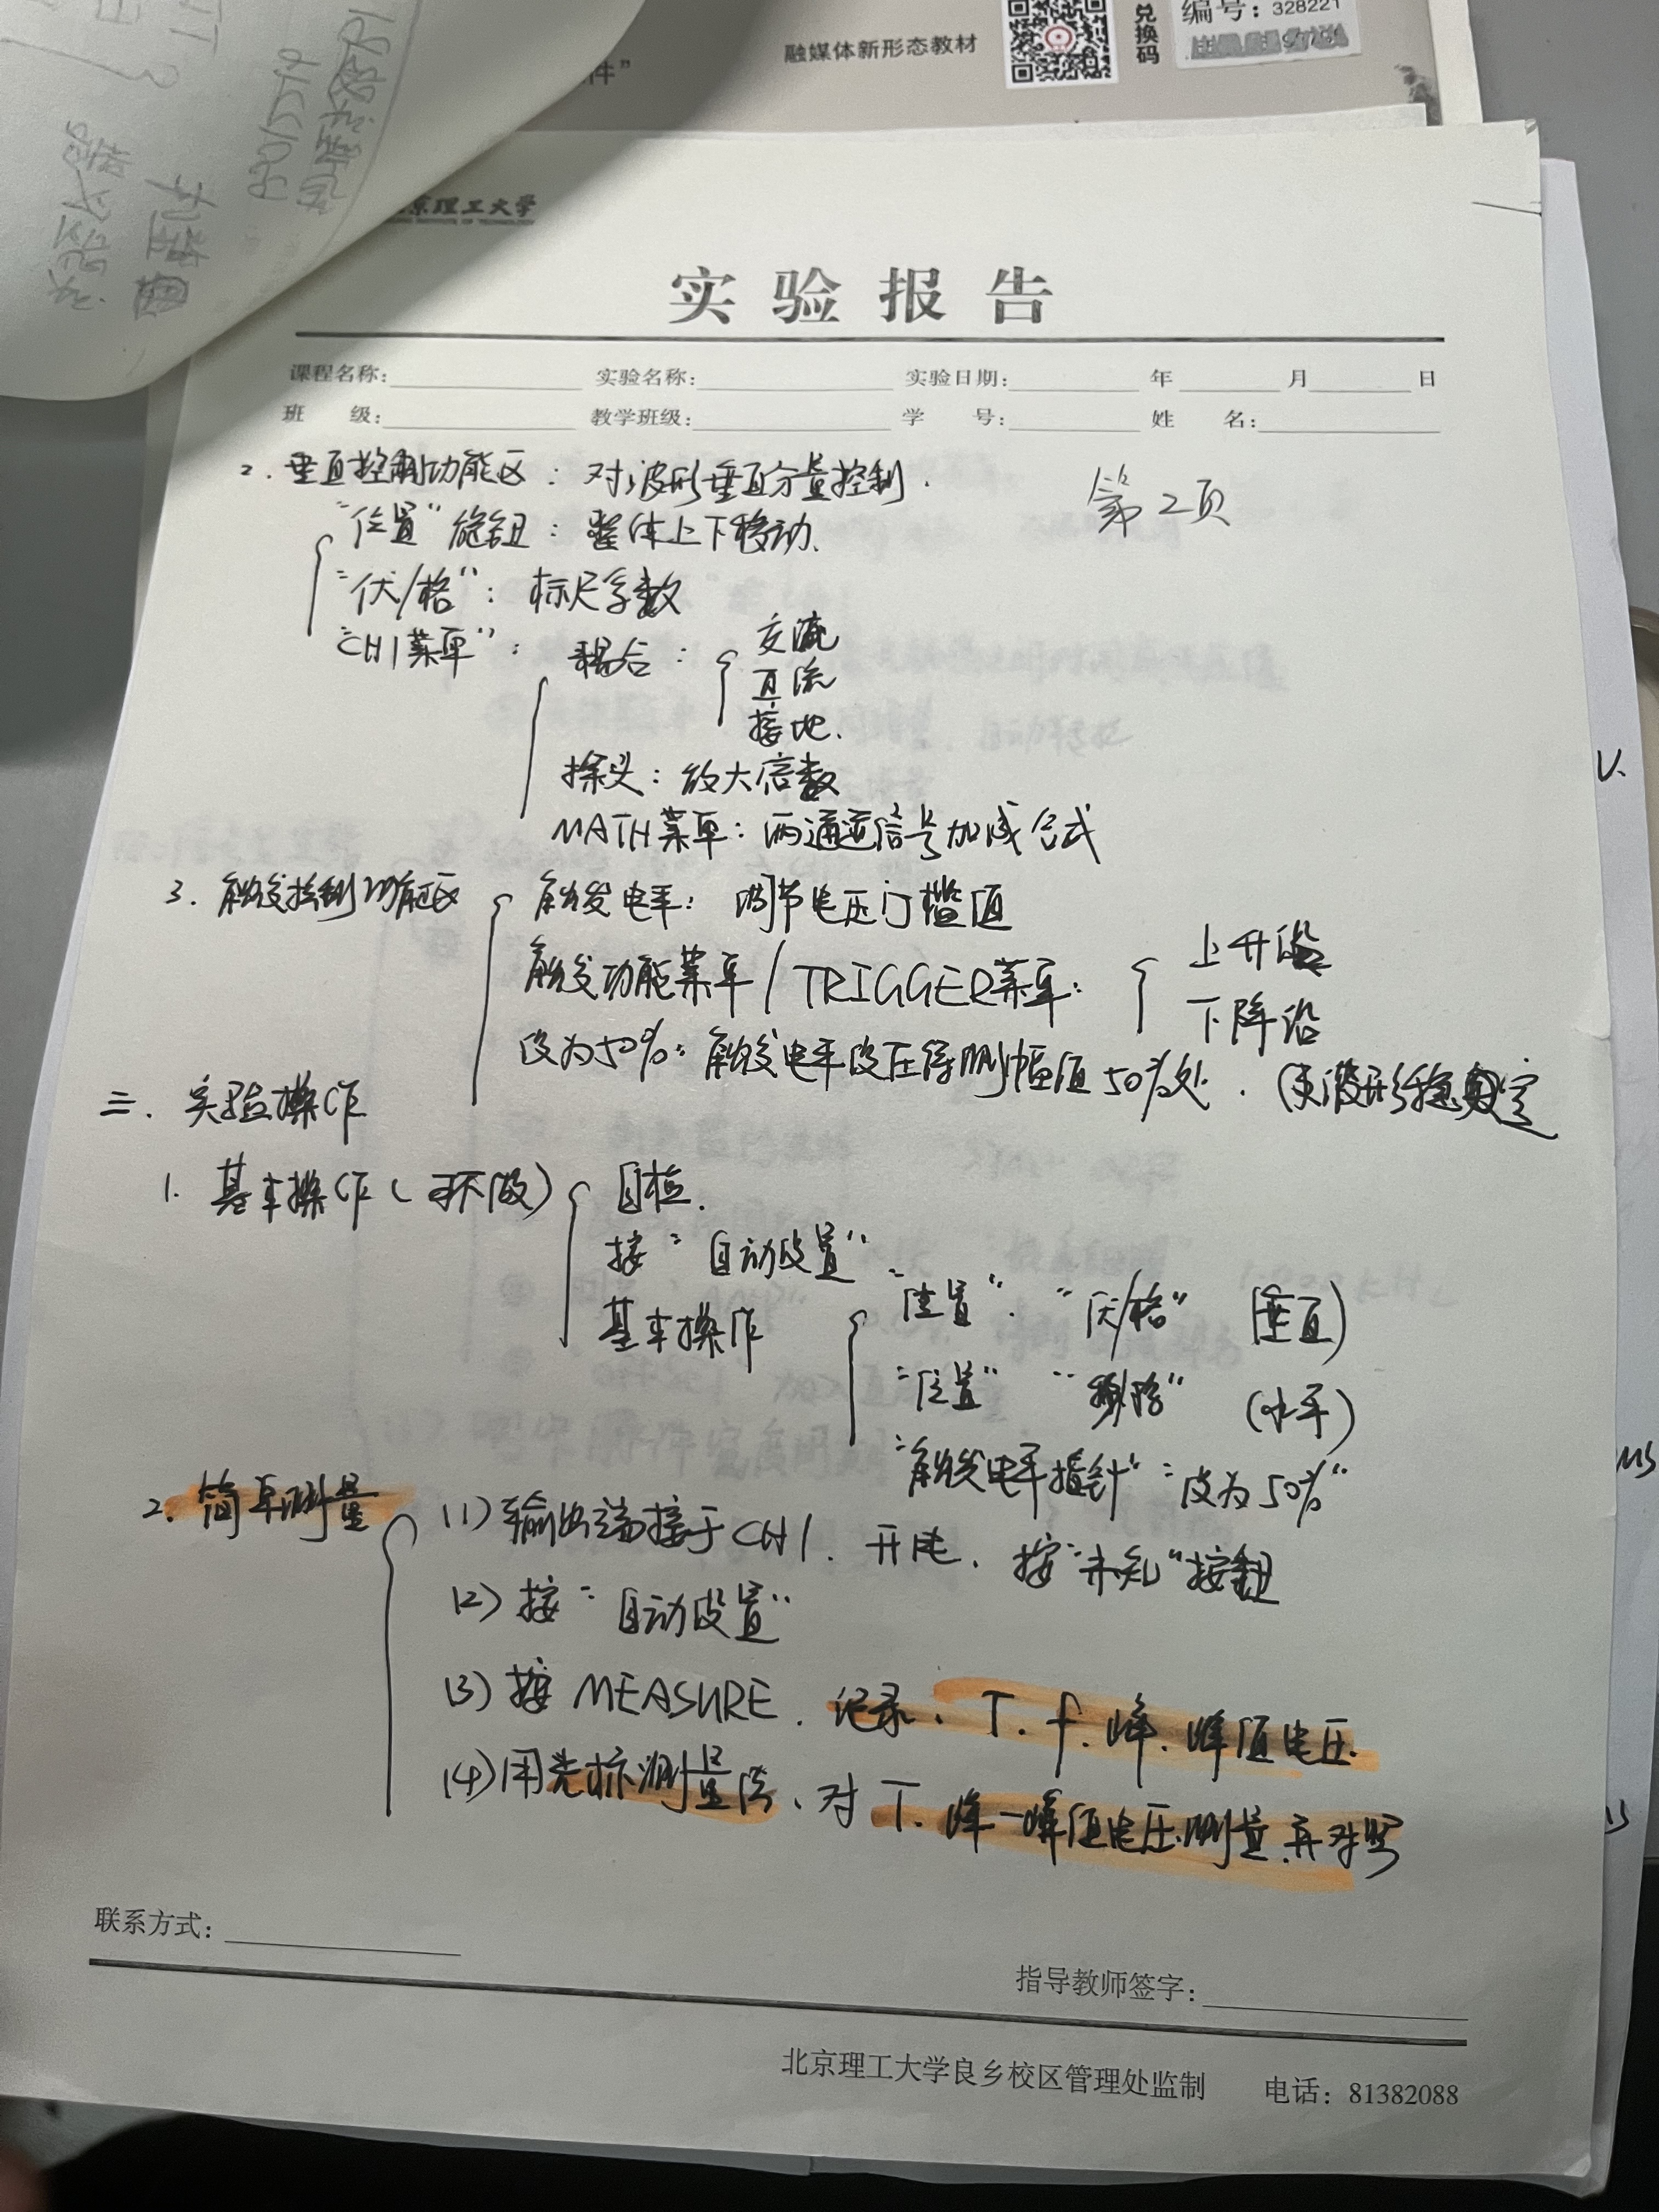 融媒体新形态教材
兑换码
编号：328221
件”
京理工大学
实验报告
课程名称：
实验名称：
实验日期：
年
月
日
班 级：
教学班级：
学 号：
姓 名：
第2页
2. 垂直控制功能区：对波形垂直分量控制.
“位置”旋钮：整体上下移动.
“伏/格”：标尺系数
“CH1菜单”：耦合：交流
直流
接地.
探头：放大倍数
MATH菜单：两通道信号加减合成
3. 触发控制功能区
触发电平：调节电压门槛值
触发功能菜单/TRIGGER菜单：
上升沿
下降沿
设为50%：触发电平设在待测幅值50%处. (使波形稳定
三. 实验操作
1. 基本操作(可不做)
自检.
按“自动设置”
基本操作
“位置”. “伏/格” (垂直)
“位置” “秒/格” (水平)
“触发电平指针” “设为50%”
2. 简单测量
(1) 输出端接于CH1. 开电. 按“未知”按钮
(2) 按“自动设置”
(3) 按MEASURE. 记录. T. f. 峰.峰值电压.
(4) 用光标测量法、对T. 峰-峰值电压测量.并对
V.
MS
联系方式：
指导教师签字：
北京理工大学良乡校区管理处监制 电话：81382088